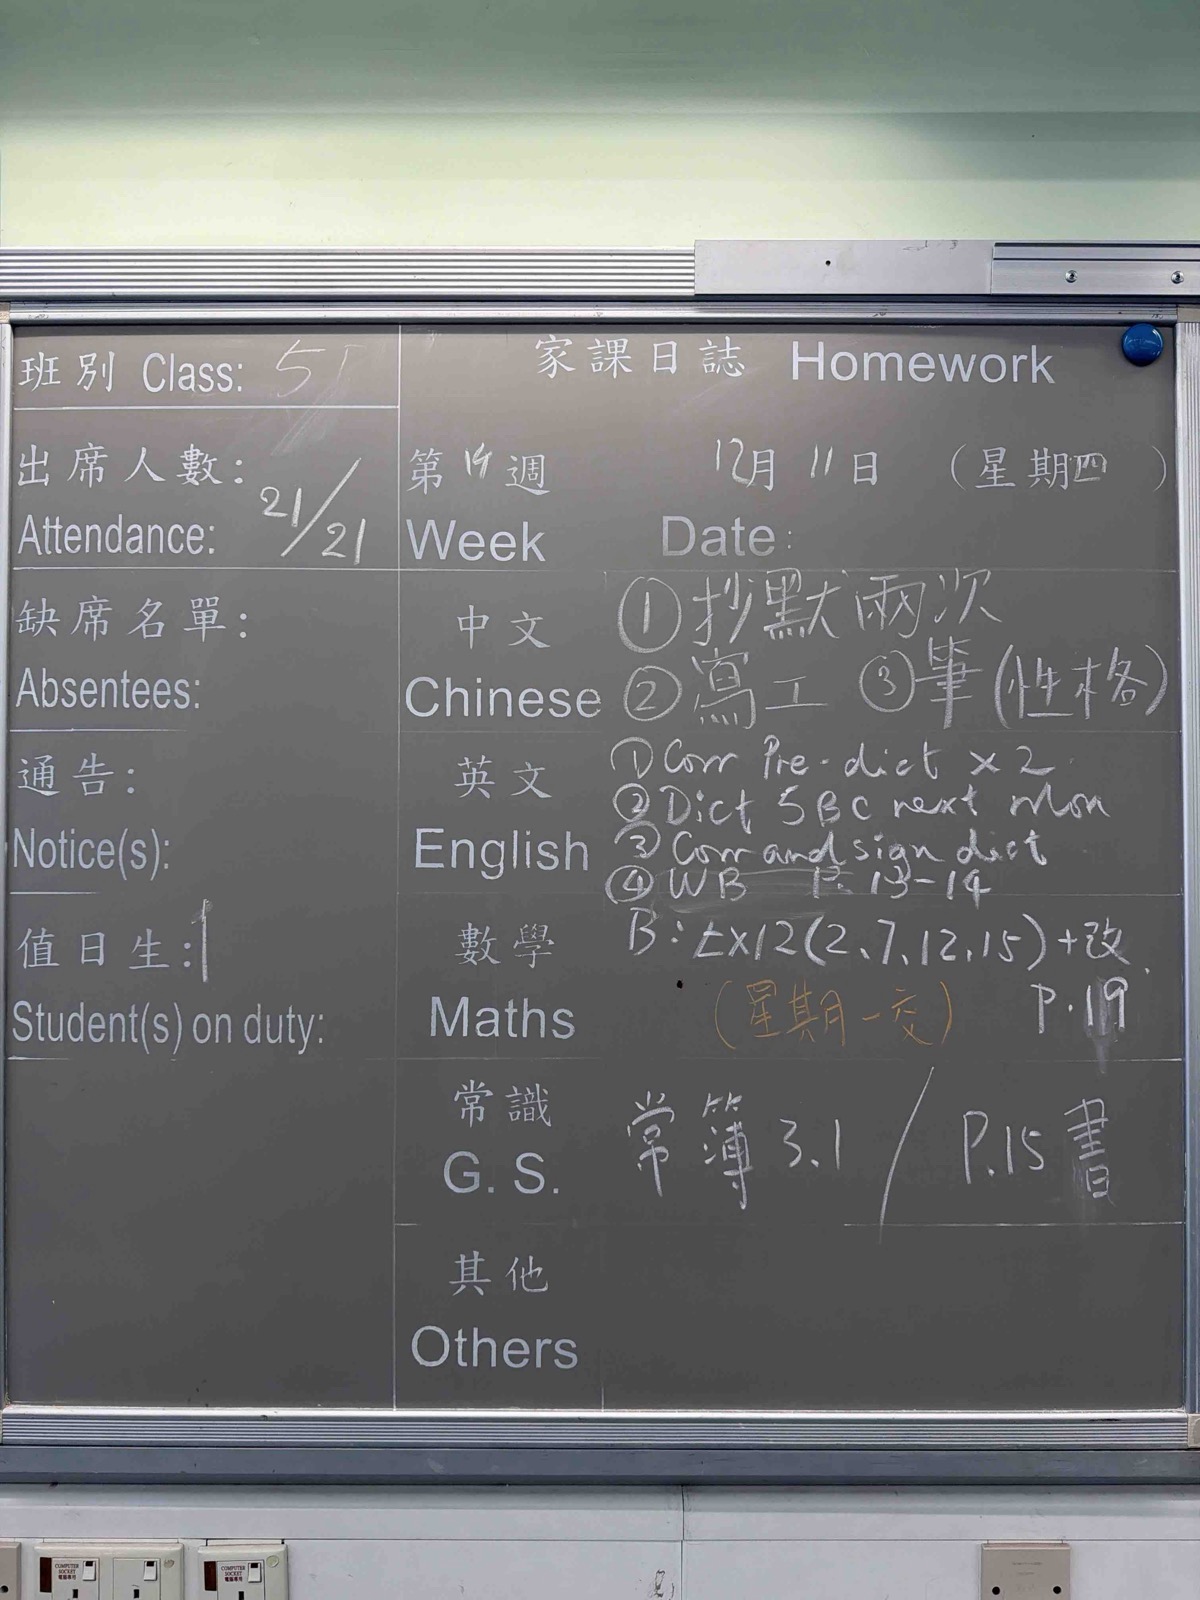 班別 Class: 5J
家課日誌 Homework
出席人數:
Attendance: 21/21
第14週 12月11日 (星期四)
Week Date:
缺席名單:
Absentees:
中文
Chinese
①抄默兩次
②寫工 ③筆(性格)
通告:
Notice(s):
英文
English
①Corr Pre-dict x2
②Dict 5BC next Mon
③Corr and sign dict
④WB P.13-14
值日生:1
Student(s) on duty:
數學
Maths
B:Ex12(2、7、12、15)+改
(星期一交) P.19
常識
G. S.
常簿 3.1 / P.15書
其他
Others
COMPUTER
SOCKET
電腦專用
COMPUTER
SOCKET
電腦專用